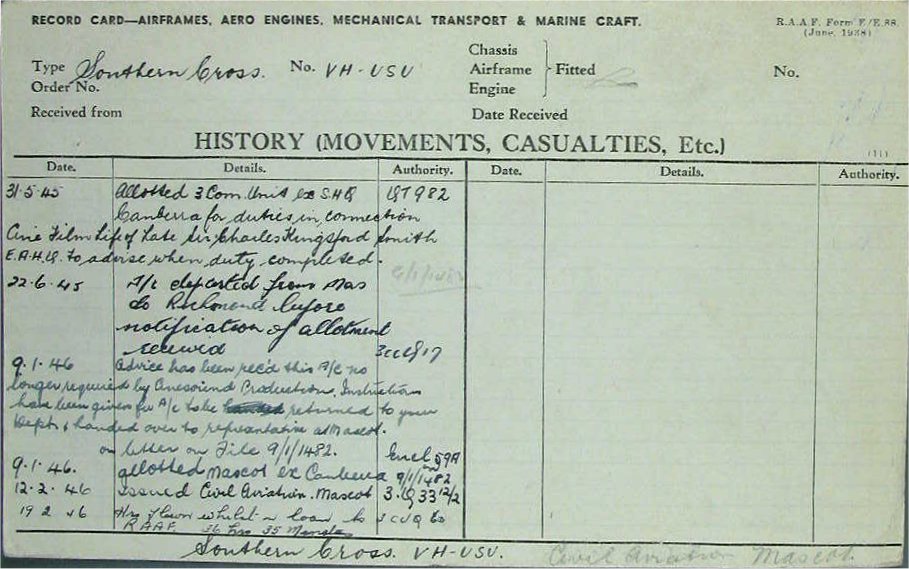 RECORD CARD—AIRFRAMES, AERO ENGINES, MECHANICAL TRANSPORT & MARINE CRAFT.
R.A.A.F. Form E/E.88.
(June, 1938)
Type Southern Cross. No. VH-USU
Order No.
Chassis
Airframe
Engine
Fitted
No.
Received from
Date Received
HISTORY (MOVEMENTS, CASUALTIES, Etc.)
Date. Details. Authority. Date. Details. Authority.
31·5·45 Allotted 3 Com. Unit ex S.H.Q 982
Canberra for duties in connection
Cine Film Life of Late Sir Charles Kingsford Smith
E.A.H.Q. to advise when duty completed.
9/1/1482
22·6·45 A/c departed from Mas
to Richmond before
notification of allotment
received
9·1·46 Advice has been rec'd this A/C no
longer required by Cinesound Productions. Instructions
have been given for A/c to be returned to your
Dept. & handed over to representative at Mascot.
on letter on File 9/1/1482. Encl 59A
9·1·46. allotted Mascot ex Canberra 9/1/1482
12·2·46 Issued Civil Aviation. Mascot 33 12/2
19 2 46 Hrs flown whilst on loan to
R.A.A.F. 36 hrs 35 Minutes
Southern Cross. VH-USU.
Civil Aviation Mascot.